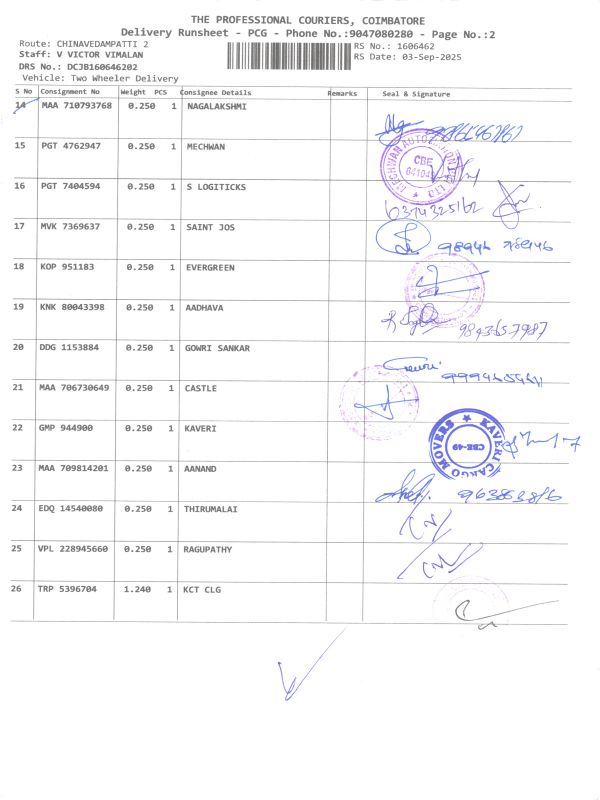 THE PROFESSIONAL COURIERS, COIMBATORE
Delivery Runsheet - PCG - Phone No.:9047080280 - Page No.:2
Route: CHINAVEDAMPATTI 2
RS No.: 1606462
Staff: V VICTOR VIMALAN
RS Date: 03-Sep-2025
DRS No.: DCJB160646202
Vehicle: Two Wheeler Delivery
S No Consignment No Weight PCS Consignee Details Remarks Seal & Signature
14 MAA 710793768 0.250 1 NAGALAKSHMI
15 PGT 4762947 0.250 1 MECHWAN
CBE
16 PGT 7404594 0.250 1 S LOGITICKS
6374325162
17 MVK 7369637 0.250 1 SAINT JOS
18 KOP 951183 0.250 1 EVERGREEN
19 KNK 80043398 0.250 1 AADHAVA
9843657987
20 DDG 1153884 0.250 1 GOWRI SANKAR
Gowri
21 MAA 706730649 0.250 1 CASTLE
22 GMP 944900 0.250 1 KAVERI
KAVERI CARGO MOVERS
CBE-49
23 MAA 709814201 0.250 1 AANAND
24 EDQ 14540080 0.250 1 THIRUMALAI
25 VPL 228945660 0.250 1 RAGUPATHY
26 TRP 5396704 1.240 1 KCT CLG